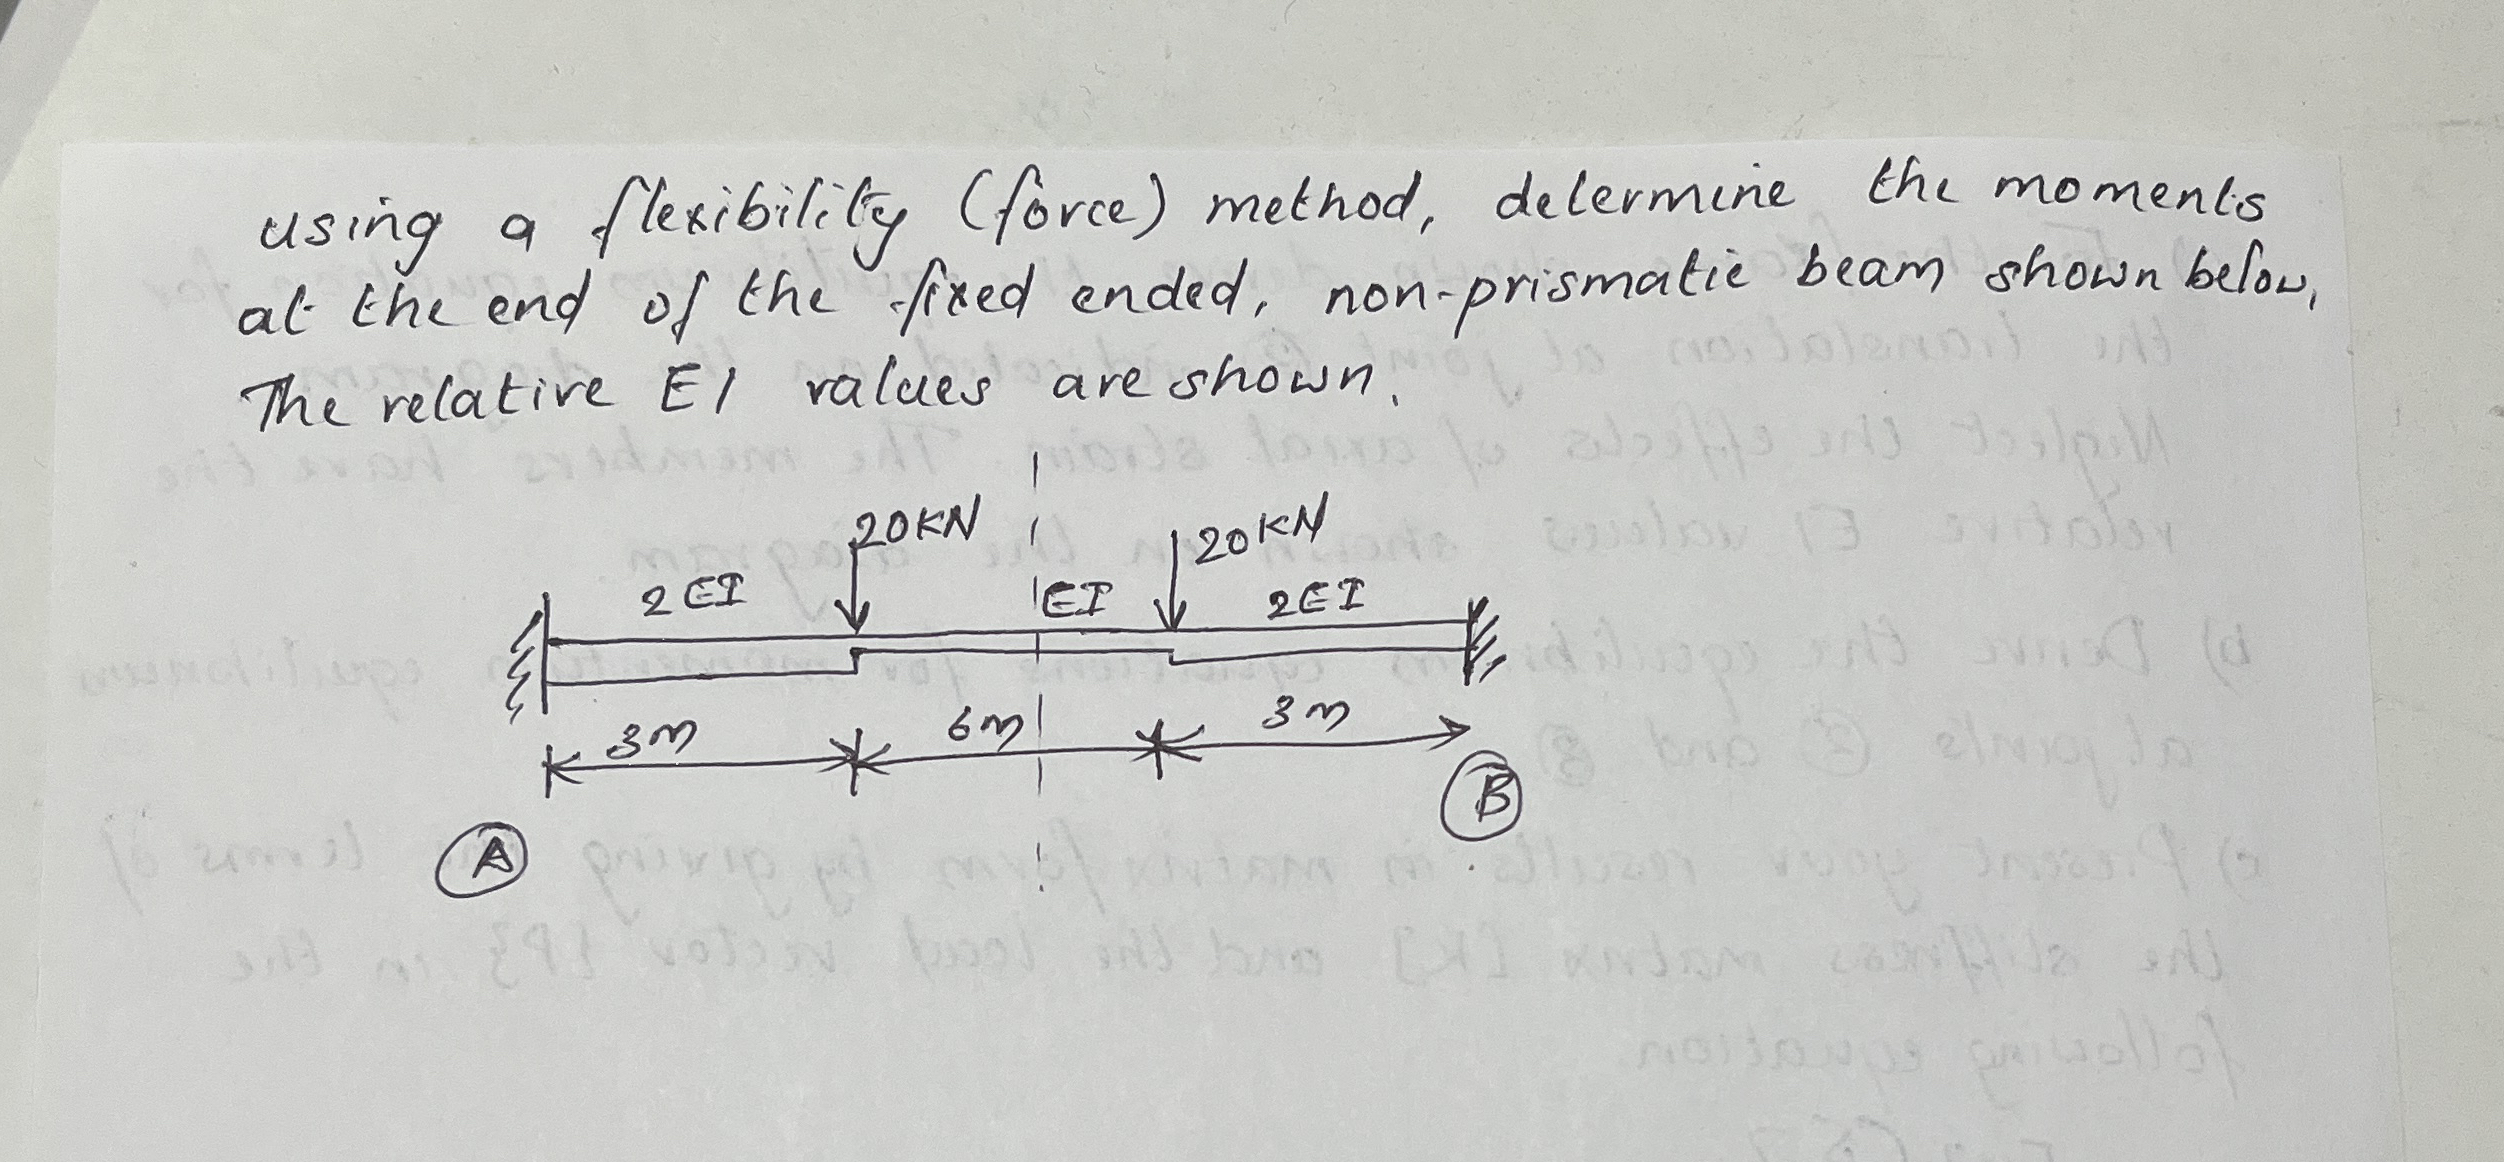 using a flexibility (force) method, determine the moments
at the end of the fixed ended, non-prismatic beam shown below,
The relative EI values are shown.
20KN
20KN
2EI
EI
2EI
3m
6m
3m
A
B